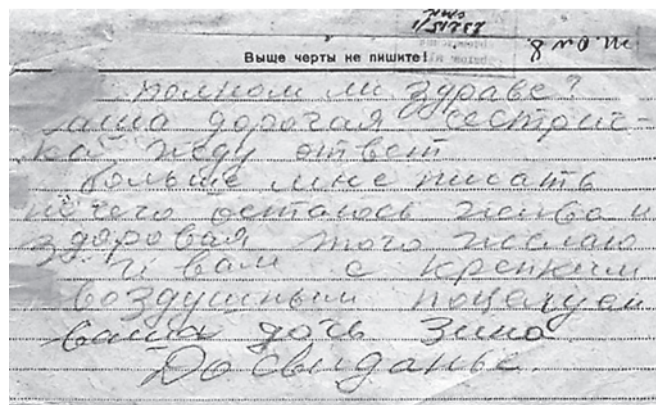 25251/1
Выще черты не пишите!
полном ли здравье?
Саша дорогая сестрич-
ка жду ответ
больше мне писать
нечего остаюсь жива и
здоровая того желаю
и вам с крепким
воздушным поцелуем
ваша дочь Зина
До свиданье.